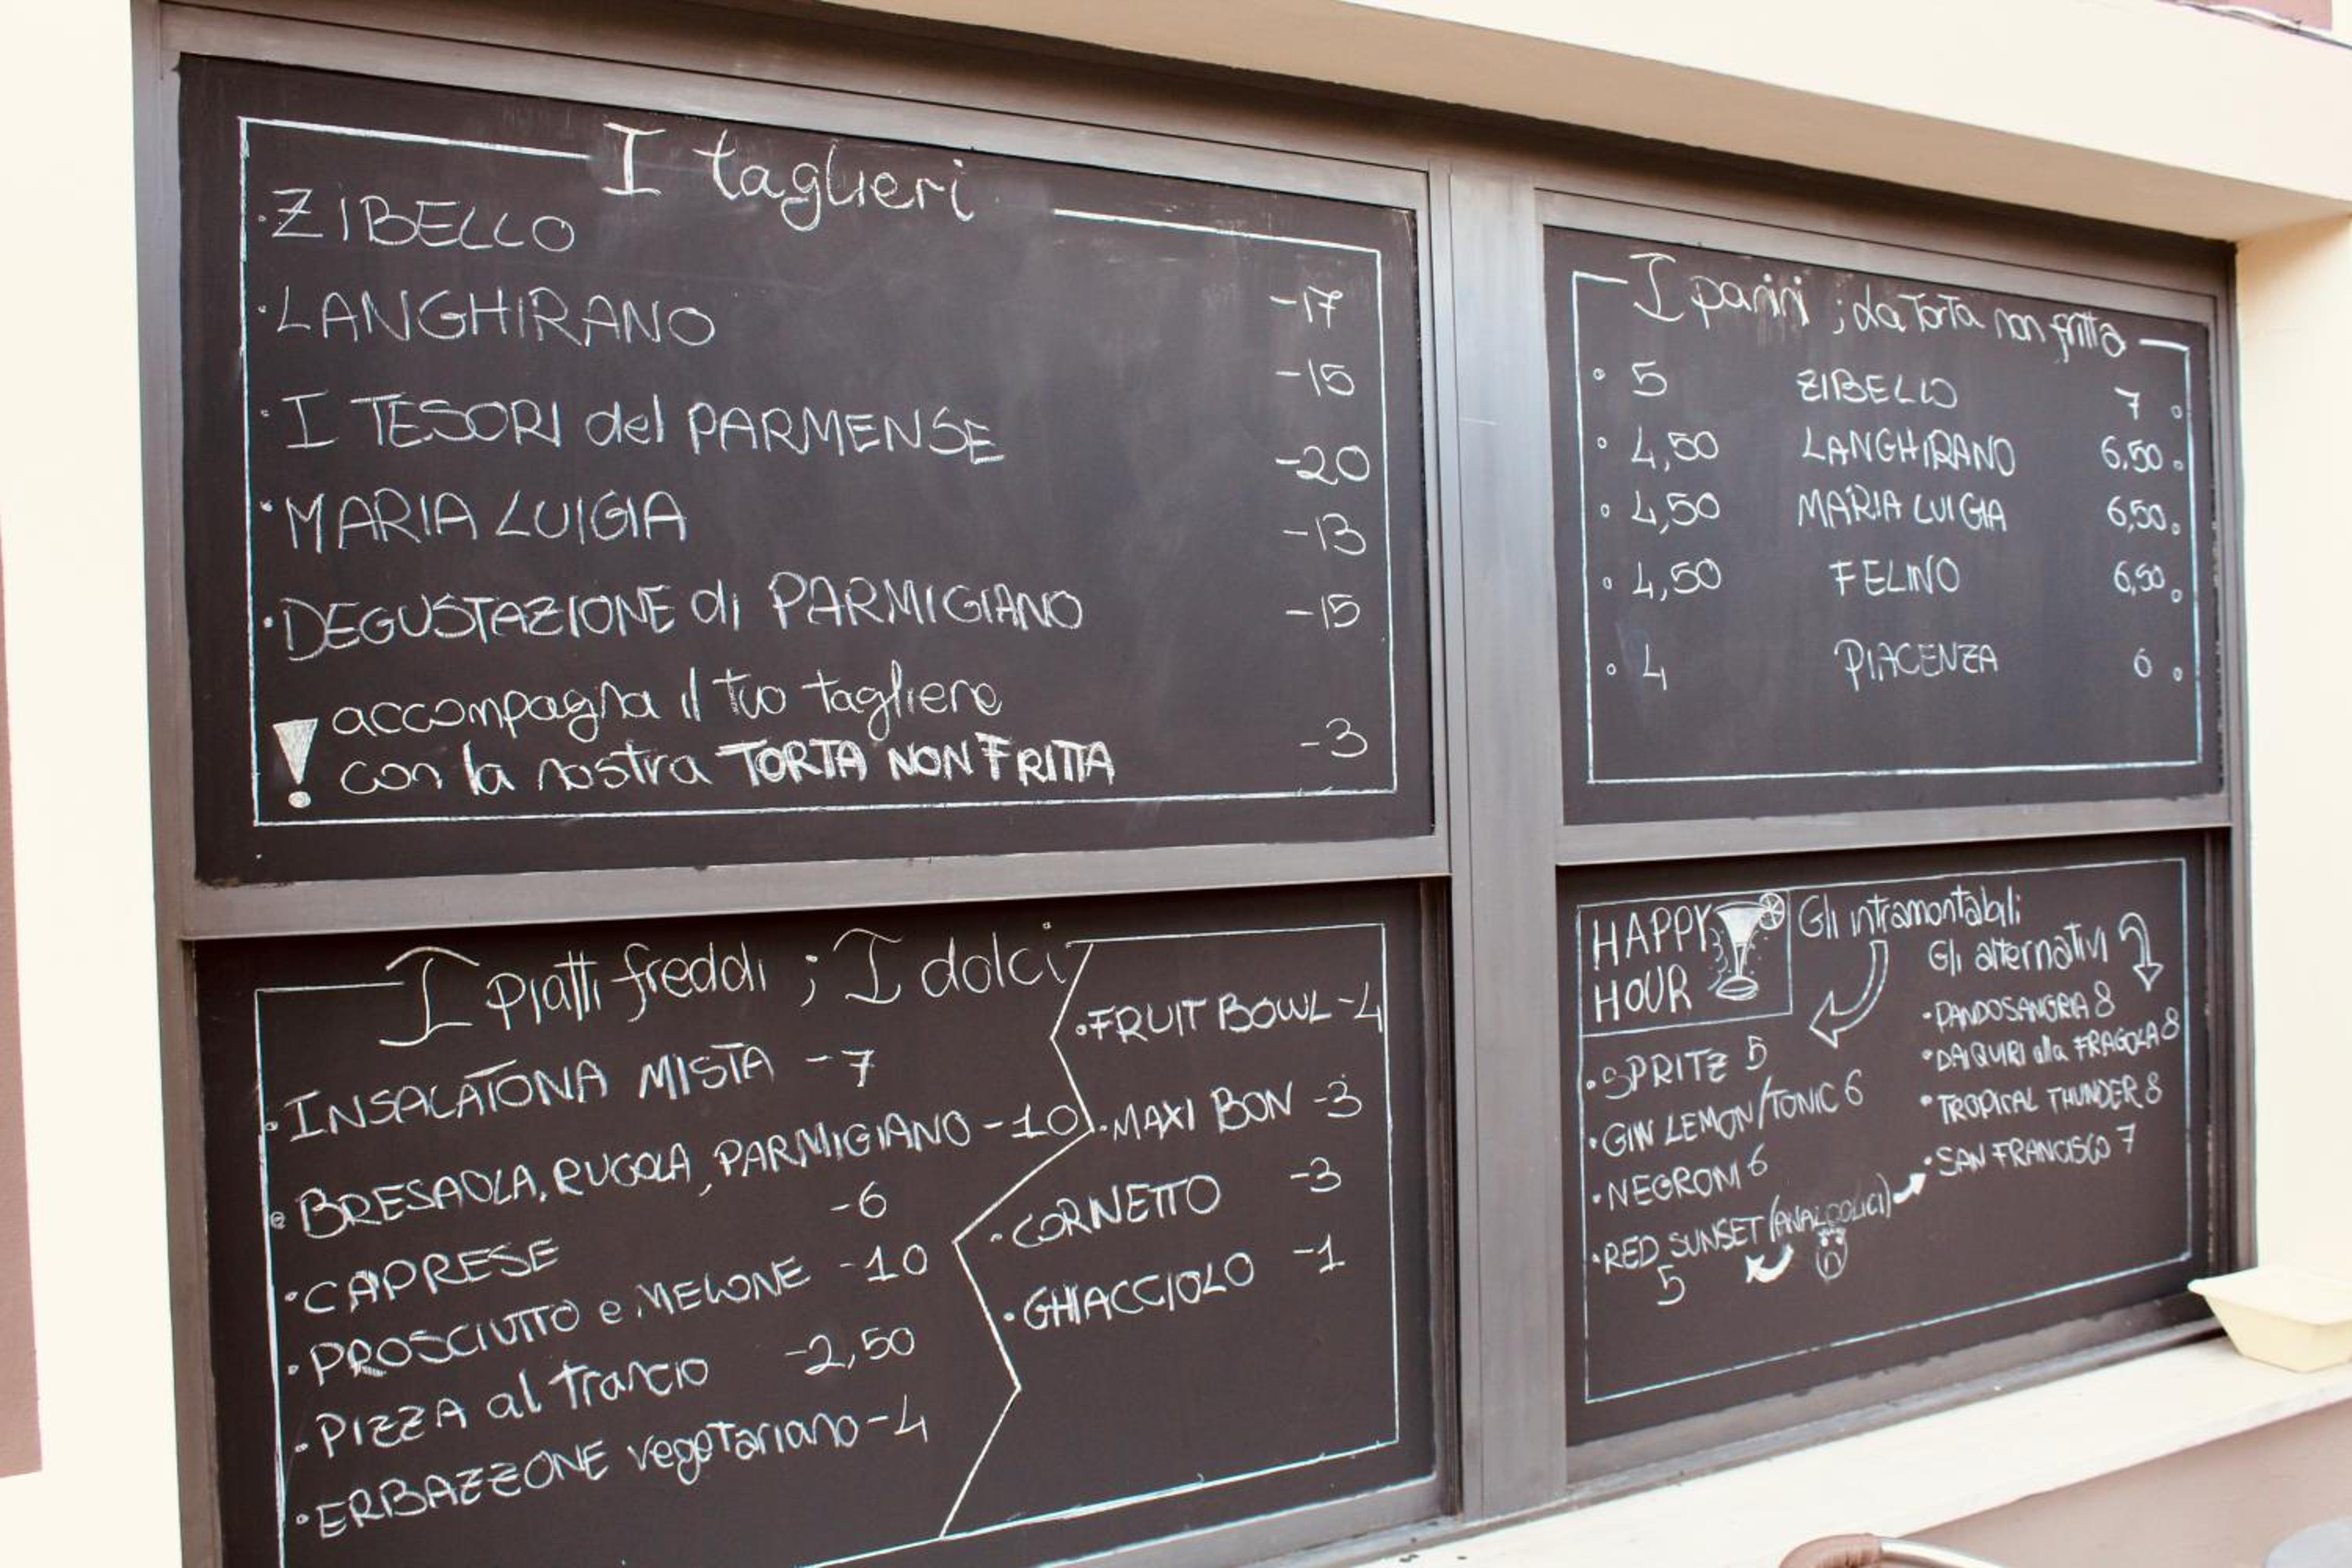 I taglieri
·ZIBELLO -17
·LANGHIRANO -15
·I TESORI del PARMENSE -20
·MARIA LUIGIA -13
·DEGUSTAZIONE di PARMIGIANO -15
! accompagna il tuo tagliere
con la nostra TORTA NON FRITTA -3
I panini ; la Torta non fritta
° 5 ZIBELLO 7 °
° 4,50 LANGHIRANO 6.50 °
° 4,50 MARIA LUIGIA 6,50 °
° 4,50 FELINO 6,50 °
° 4 PIACENZA 6 °
I piatti freddi ; I dolci
·INSALATONA MISTA -7
·BRESAOLA, RUCOLA, PARMIGIANO -10
·CAPRESE -6
·PROSCIUTTO e MELONE -10
·PIZZA al trancio -2,50
·ERBAZZONE vegetariano -4
·FRUIT BOWL -4
·MAXI BON -3
·CORNETTO -3
·GHIACCIOLO -1
HAPPY
HOUR
Gli intramontabili
·SPRITZ 5
·GIN LEMON/TONIC 6
·NEGRONI 6
·RED SUNSET (ANALCOLICI)
5
Gli alternativi
·PANDOSANGRIA 8
·DAIQUIRI alla FRAGOLA 8
·TROPICAL THUNDER 8
·SAN FRANCISCO 7